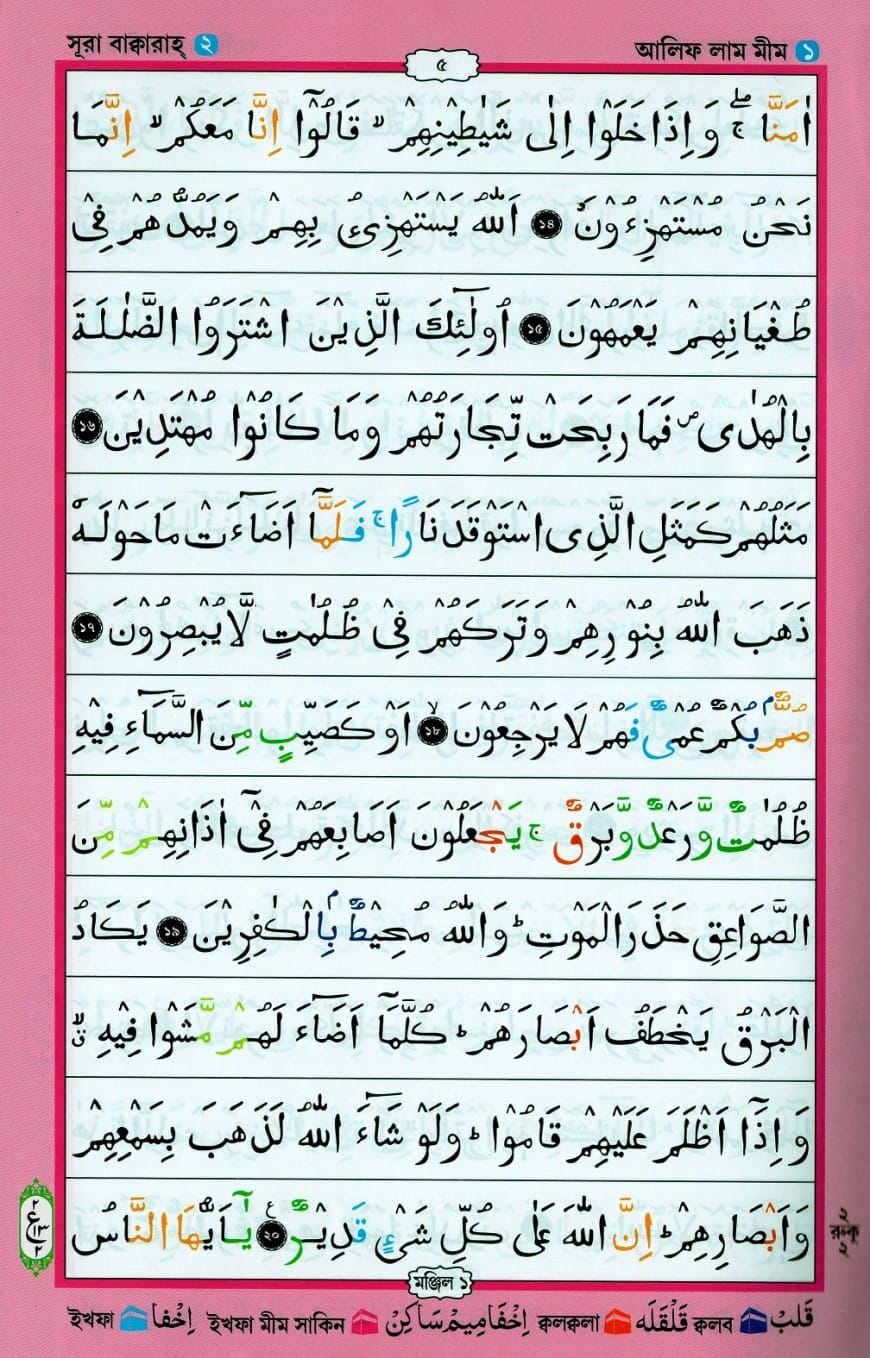 সূরা বাক্বারাহ্ ২ আলিফ লাম মীম ১
৫
اٰمَنَّا ۖۚ وَ اِذَا خَلَوْا اِلٰى شَيٰطِيْنِهِمْ ۙ قَالُوْٓا اِنَّا مَعَكُمْ ۙ اِنَّمَا
نَحْنُ مُسْتَهْزِءُوْنَ ১৪ اَللّٰهُ يَسْتَهْزِئُ بِهِمْ وَيَمُدُّهُمْ فِيْ
طُغْيَانِهِمْ يَعْمَهُوْنَ ১৫ اُولٰٓئِكَ الَّذِيْنَ اشْتَرَوُا الضَّلٰلَةَ
بِالْهُدٰى ۪ فَمَا رَبِحَتْ تِّجَارَتُهُمْ وَمَا كَانُوْا مُهْتَدِيْنَ ১৬
مَثَلُهُمْ كَمَثَلِ الَّذِى اسْتَوْقَدَ نَارًا ۚ فَلَمَّآ اَضَآءَتْ مَا حَوْلَهٗ
ذَهَبَ اللّٰهُ بِنُوْرِهِمْ وَتَرَكَهُمْ فِيْ ظُلُمٰتٍ لَّا يُبْصِرُوْنَ ১৭
صُمٌّۢ بُكْمٌ عُمْيٌ فَهُمْ لَا يَرْجِعُوْنَ ১৮ ۙ اَوْ كَصَيِّبٍ مِّنَ السَّمَآءِ فِيْهِ
ظُلُمٰتٌ وَّرَعْدٌ وَّبَرْقٌ ۚ يَجْعَلُوْنَ اَصَابِعَهُمْ فِيْٓ اٰذَانِهِمْ مِّنَ
الصَّوَاعِقِ حَذَرَ الْمَوْتِ ؕ وَاللّٰهُ مُحِيْطٌۢ بِالْكٰفِرِيْنَ ১৯ يَكَادُ
الْبَرْقُ يَخْطَفُ اَبْصَارَهُمْ ؕ كُلَّمَآ اَضَآءَ لَهُمْ مَّشَوْا فِيْهِ ۙۗ
وَ اِذَآ اَظْلَمَ عَلَيْهِمْ قَامُوْا ؕ وَلَوْ شَآءَ اللّٰهُ لَذَهَبَ بِسَمْعِهِمْ
وَاَبْصَارِهِمْ ؕ اِنَّ اللّٰهَ عَلٰى كُلِّ شَيْءٍ قَدِيْرٌ ২০ ع يٰٓاَيُّهَا النَّاسُ
٢ ع ١٣ ٢
২ রুকু ২
মঞ্জিল ১
ইখফা اِخْفَا ইখফা মীম সাকিন اِخْفَا مِيْم سَاكِنْ ক্বলক্বলা قَلْقَلَه ক্বলব قَلْبْ